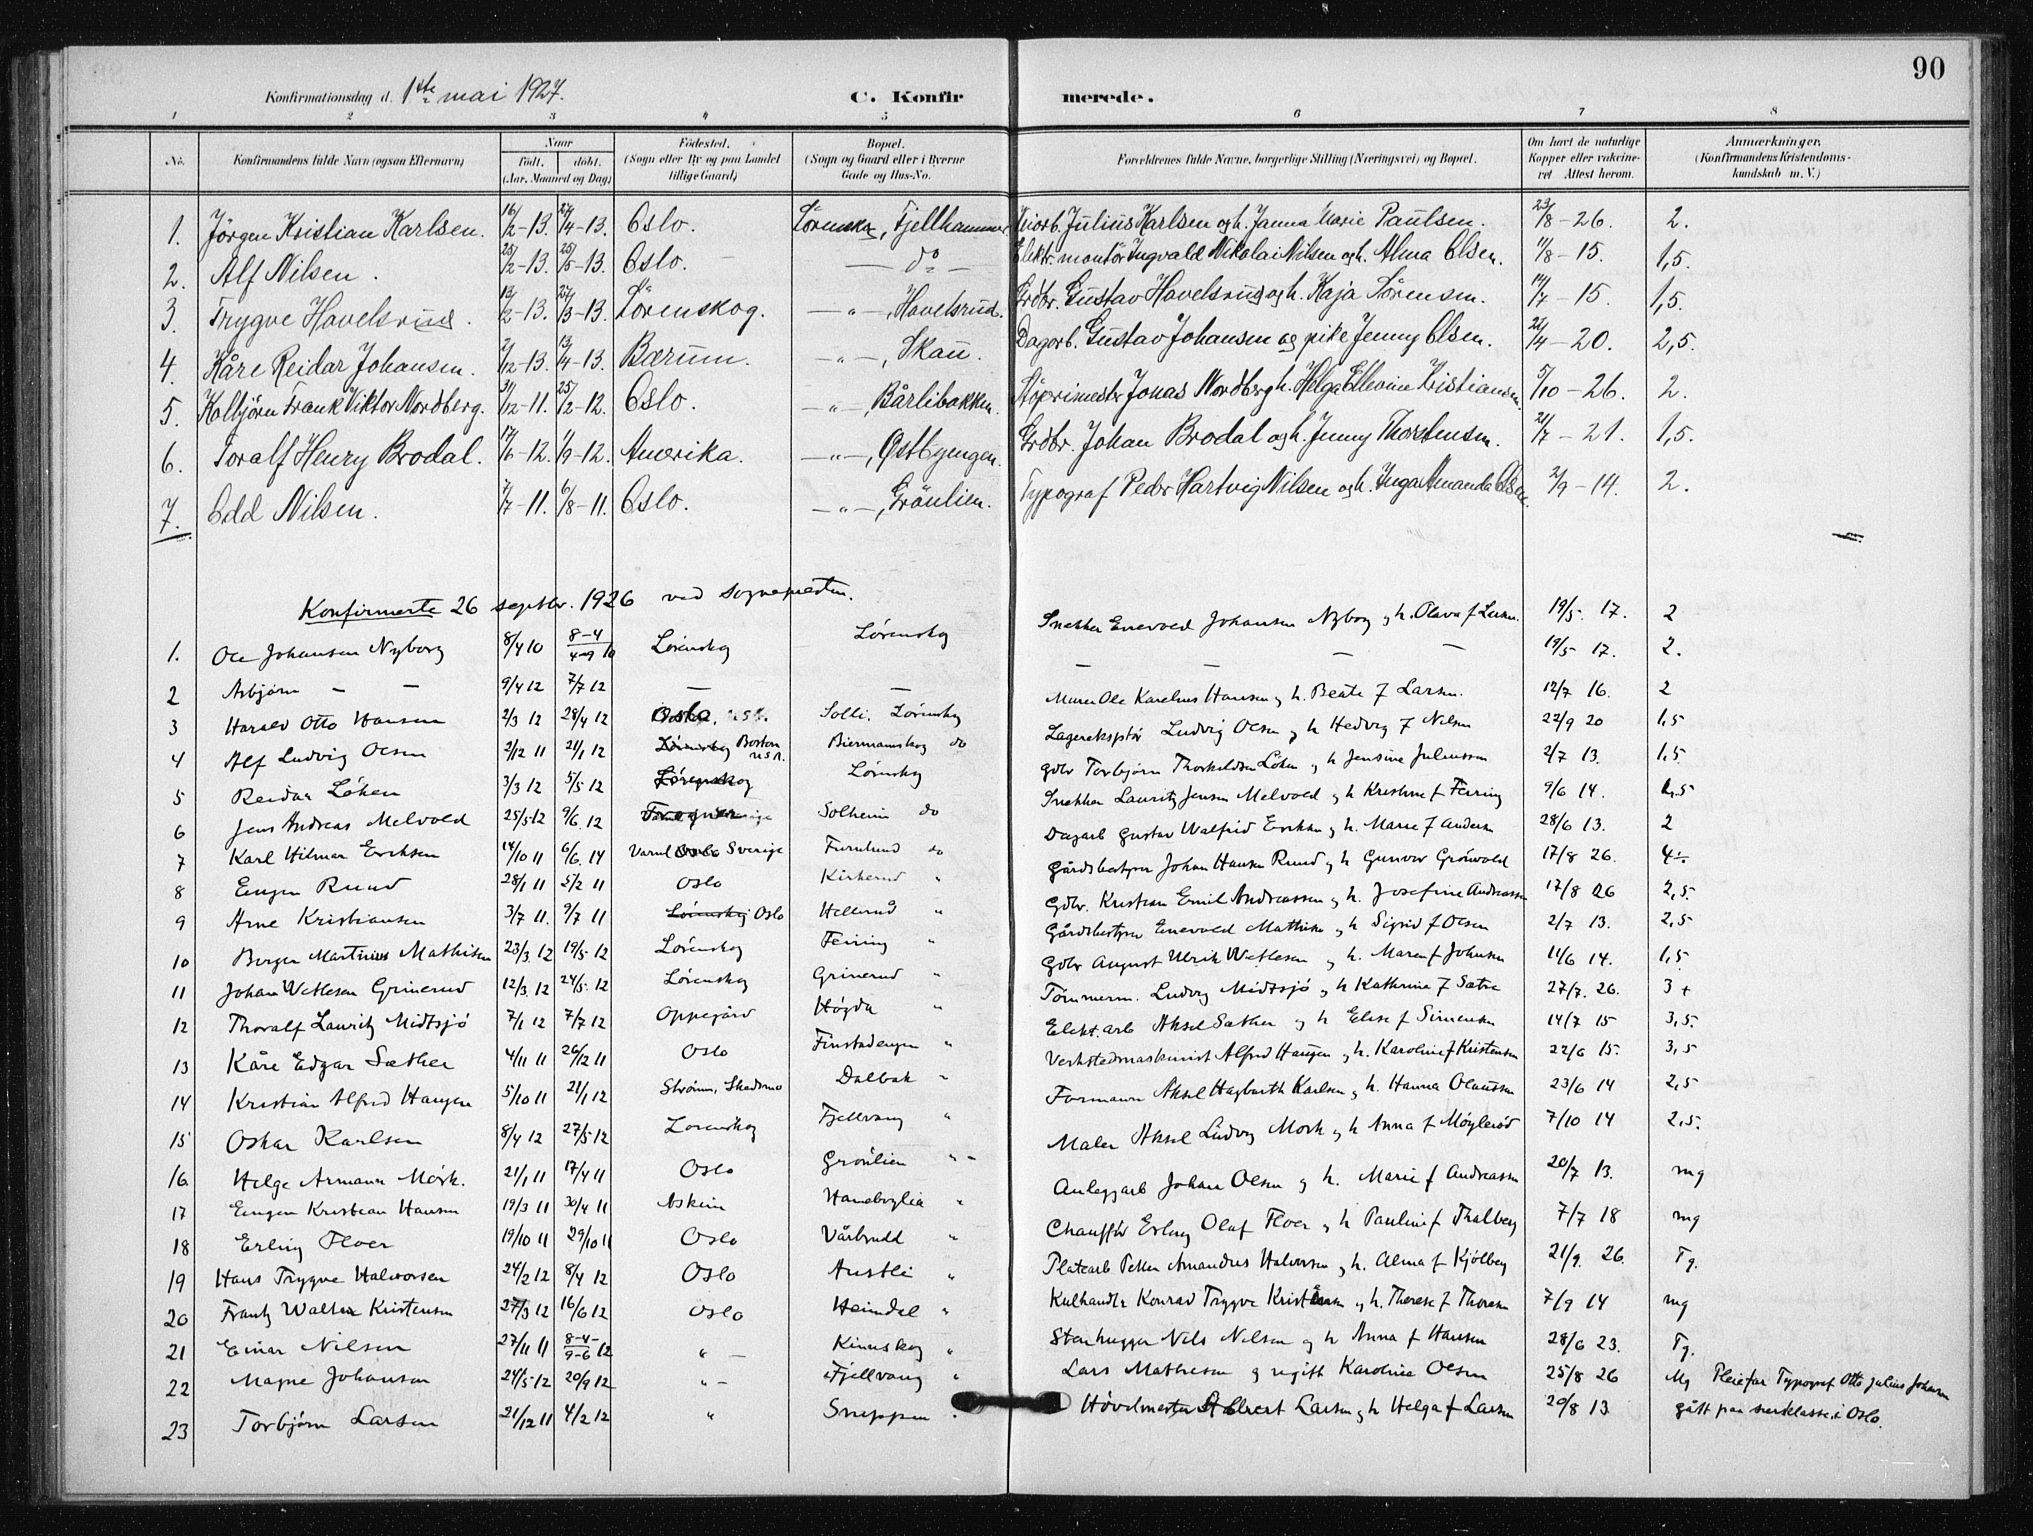 90
Konfirmationsdag d. 1ste mai 1927. C. Konfirmerede.
1 2 3 4 5 6 7 8
No. Konfirmandens fulde Navn (ogsaa Efternavn) Naar født. døbt. (Aar, Maaned og Dag) Fødested. (Sogn eller By og paa Landet tillige Gaard) Bopæl. (Sogn og Gaard eller i Byerne Gade og Hus-No. Forældrenes fulde Navne, borgerlige Stilling (Næringsvei) og Bopæl. Om havt de naturlige Kopper eller vakcineret Attest herom. Anmærkninger. (Konfirmandens Kristendomskundskab m. V.)
1. Jörgen Kristian Karlsen. 16/2-13. 27/4-13. Oslo. Lörenskog, Fjellhammer Julius Karlsen og h. Janna Marie Paulsen. 23/8-26. 2.
2. Alf Nilsen. 25/2-13. 25/5-13. Oslo. — do — Elektr. montör Ingvald Nikolai Nilsen og h. Alma Olsen. 11/8-15. 1,5.
3. Trygve Havelsrud. 13/2-13. 27/3-13. Lörenskog. —"—, Havelsrud. Grdbr. Gustav Havelsrud og h. Kaja Sörensen. 14/7-15. 1,5.
4. Kåre Reidar Johansen. 2/12-13. 13/4-13. Bærum. —"—, Skau. Dagarb. Gustav Johansen og pike Jenny Olsen. 22/4-20. 2,5.
5. Kolbjörn Frank Viktor Nordberg. 31/12-11. 25/2-12. Oslo. —"—, Bårlibakken. Stöperimester Jonas Nordberg h. Helga Ellevine Kristiansen. 5/10-26. 2.
6. Toralf Henry Brodal. 17/6-12. 1/9-12. Amerika. —"—, Østbyengen. Grdbr. Johan Brodal og h. Jenny Thorstensen. 21/7-21. 1,5.
7. Odd Nilsen. 7/7-11. 6/8-11. Oslo. —"—, Gröulien. Typograf Peder Hartvig Nilsen og h. Inga Amanda Olsen. 2/9-14. 2.
Konfirmerte 26 septbr. 1926 ved sognepresten.
1. Ole Johansen Nyborg 8/4 10 8-4/4-9 10 Lørenskog Lørenskog Snekker Enevold Johansen Nyborg og h. Olava f Larsen. 19/5. 17. 2
2 Asbjørn — — 9/4 12 7/7 12 — — — — — — 19/5 17. 2.
3 Harald Otto Hansen 2/3 12 28/4 12 Oslo Solli. Lørenskog Murer Ole Karelius Hansen og h. Beate f Larsen. 12/7 16. 2
4 Alf Ludvig Olsen 2/12 11 21/1 12 Lørenskog Boston USA. Biermannskog do Lagerekspdtør Ludvig Olsen og h Hedvig f Nilsen 22/9 20 1,5
5 Reidar Løken 3/3 12 5/5 12 Lørenskog Lørenskog Gdbr Torbjørn Thorkildsen Løken og h Jensine Juliussen 2/7 13. 1,5.
6 Jens Andreas Melvold 25/5 12 9/6. 12 Fragner Solheim do Snekker Lauritz Jensen Melvold og h Kristine f Feiring 9/6 14. 1,5
7 Karl Hilmar Eriksen 14/10 11 6/6. 14 Sverige Furulund do Dagarb Gustav Walfrid Eriksen og h. Marie f Andersen 28/6 13. 2
8 Eugen Ruud 28/1 11 5/2 11 Oslo Kirkerud " Gårdsbestyrer Johan Hansen Ruud og h Gunvor Grönvold 17/8 26. 4÷
9 Arne Kristiansen 3/7 11. 9/7 11 Lørenskog Oslo Hellerud " Gdbr. Kristian Emil Andreassen og h. Josefine Andreassen 17/8 26 2,5.
10 Birger Martinius Mathisen 23/3. 12 19/5. 12 Lørenskog Feiring " Gårdsbestyrer Enevold Mathisen og h Sigrid f Olsen 2/7 13. 2,5
11 Johan Wetlesen Grinerud 12/3. 12 24/5. 12 Lørenskog Grinerud " Gdbr August Ulrik Wetlesen og h. Maren f Johnsen 11/6 14. 1,5
12 Thoralf Lauritz Midtsjö 7/1 12 7/7 12 Oppegård Högda " Tömmerm. Ludvig Midtsjö og h Kathrine f Sætre 27/7. 26. 3+
13 Kåre Edgar Sæther 4/11 11 26/12 11 Oslo Finstadengen " Elekt.arb Aksel Sæther og h Elise f Simensen 14/7 15 3,5.
14 Kristian Alfred Haugen 5/10 11 21/1 12 Strömm, Skedsmo Dalbak " Verkstedmaskinist Alfred Haugen og h. Karoline f Kristensen 22/6 15. 3,5
15 Oskar Karlsen 8/4 12 27/5 12 Lørenskog Fjellvang " Formann Aksel Hagbarth Karlsen og h. Hanna Olaussen 23/6 14 2,5
16. Helge Armann Mörk. 21/1 11 17/4 11 Oslo Gröulien " Maler Aksel Ludvig Mörk og h Anna f Möglerød 7/10 14 2,5.
17 Eugen Kristian Hansen 19/3 11 30/4 11 Askim Haneborglia " Anleggarb Johan Olsen og h. Marie f Andreassen 20/7 13. mg
18 Erling Floer 19/10 11 29/10 11 Oslo Vårbrudd " Chauffør Erling Olaf Floer og h Pauline f Thalberg 7/7 18 mg
19 Hans Trygve Halvorsen 24/2 12 8/4 12 Oslo Austli " Platearb Petter Amandus Halvorsen og h. Alma f Kjölberg 21/9. 26. Tg.
20 Frantz Walter Kristensen 27/3 12 16/6 12 Oslo Heimdal " Kulhandler Konrad Trygve Kristensen og h. Therese f Thoresen 7/9 14 mg
21 Einar Nilsen 27/11 11 8-4-/9-6 12 " — Kinnskog " Stenhugger Nels Nilsen og h Anna f Hansen 28/6 23. Tg.
22 Magne Johansen 24/5 12 20/9 12 " — Fjellvang " Lars Mathesen og ugift Karoline Olsen 25/8 26 Mg Pleiefar Typograf Otto Julius Johansen
23 Torbjørn Larsen 21/12 11 4/2 12 " Sneppen " Hövelmester Albert Larsen og h Helga f Larsen 20/8 13. gått paa særklasse i Oslo.